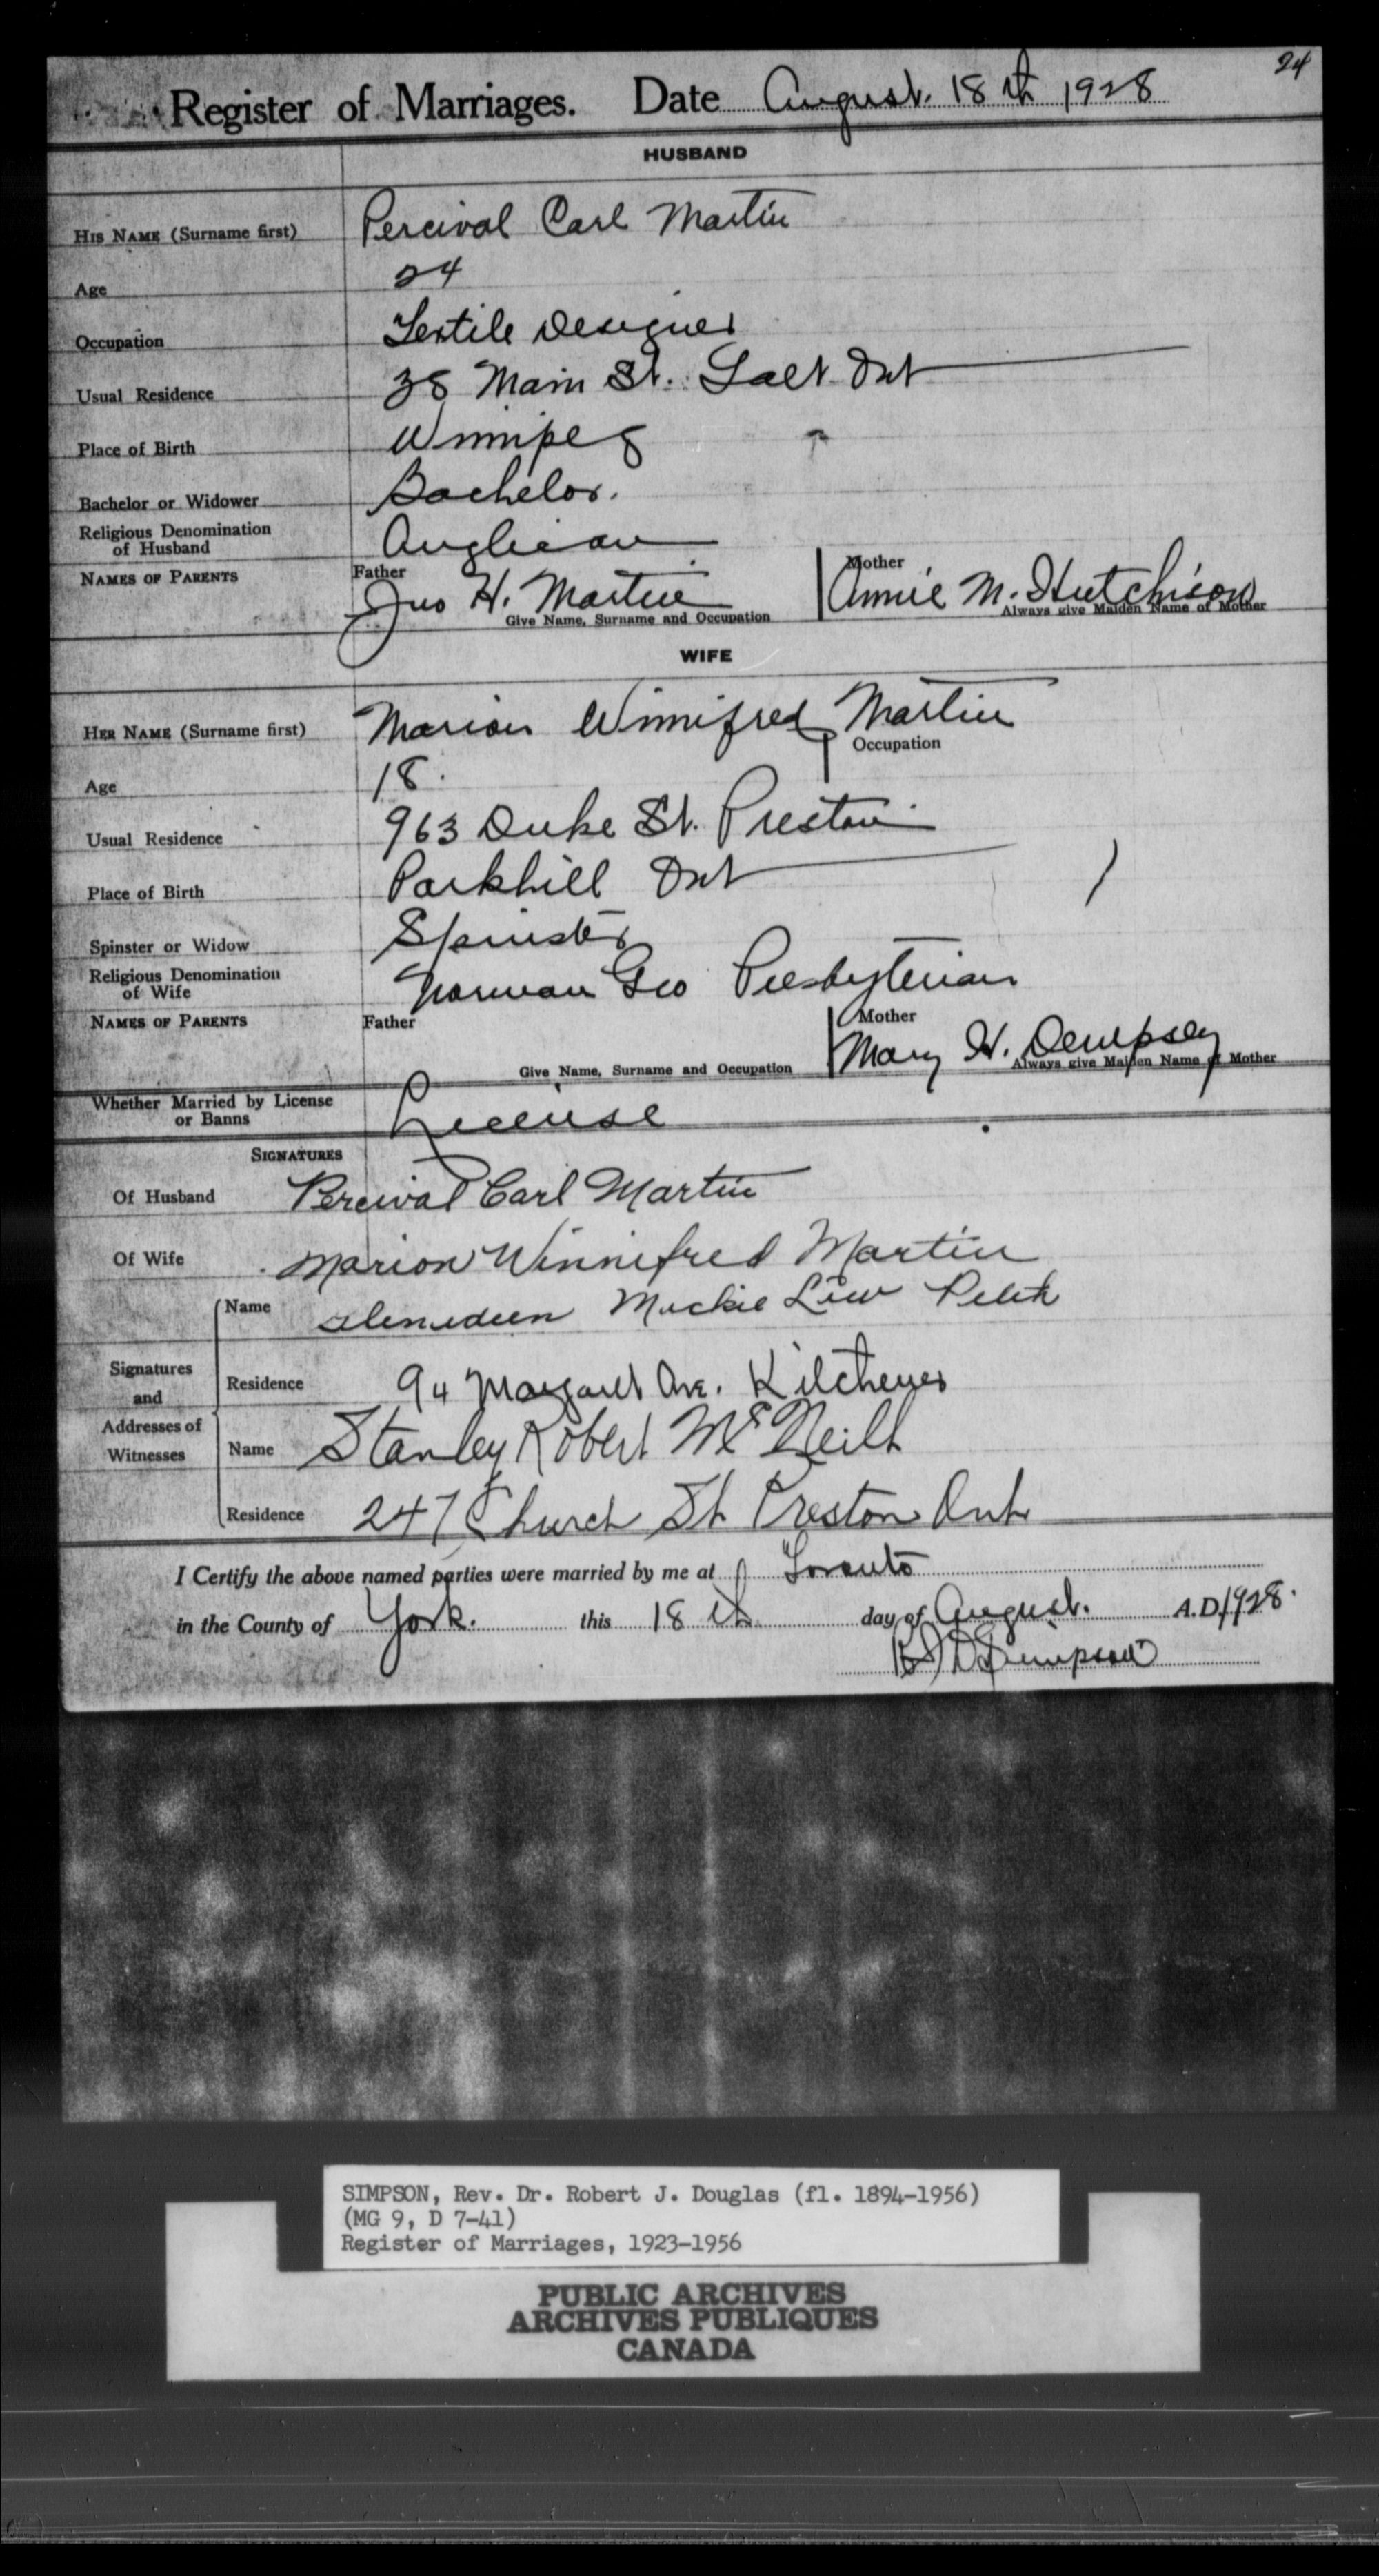 24
Register of Marriages. Date August. 18th 1928
HUSBAND
HIS NAME (Surname first) Percival Carl Martin
Age 24
Occupation Textile Designer
Usual Residence 38 Main St. Galt Ont
Place of Birth Winnipeg
Bachelor or Widower Bachelor.
Religious Denomination
of Husband Anglican
NAMES OF PARENTS Father Jno H. Martin Mother Annie M. Hutchison
Give Name, Surname and Occupation Always give Maiden Name of Mother
WIFE
HER NAME (Surname first) Marion Winnifred Martin
Occupation
Age 18.
Usual Residence 963 Duke St. Preston
Place of Birth Parkhill Ont
Spinster or Widow Spinster
Religious Denomination
of Wife Norman Geo Presbyterian
NAMES OF PARENTS Father Mother Mary H. Dempsey
Give Name, Surname and Occupation Always give Maiden Name of Mother
Whether Married by License
or Banns License
SIGNATURES
Of Husband Percival Carl Martin
Of Wife Marion Winnifred Martin
Name Mackie
Signatures
and
Addresses of
Witnesses
Residence 94 Margaret Ave. Kitchener
Name Stanley Robert McNeill
Residence 247 Church St Preston Ont
I Certify the above named parties were married by me at Toronto
in the County of York. this 18th day of August. A.D. 1928.
RJDSimpson
SIMPSON, Rev. Dr. Robert J. Douglas (fl. 1894-1956)
(MG 9, D 7-41)
Register of Marriages, 1923-1956
PUBLIC ARCHIVES
ARCHIVES PUBLIQUES
CANADA